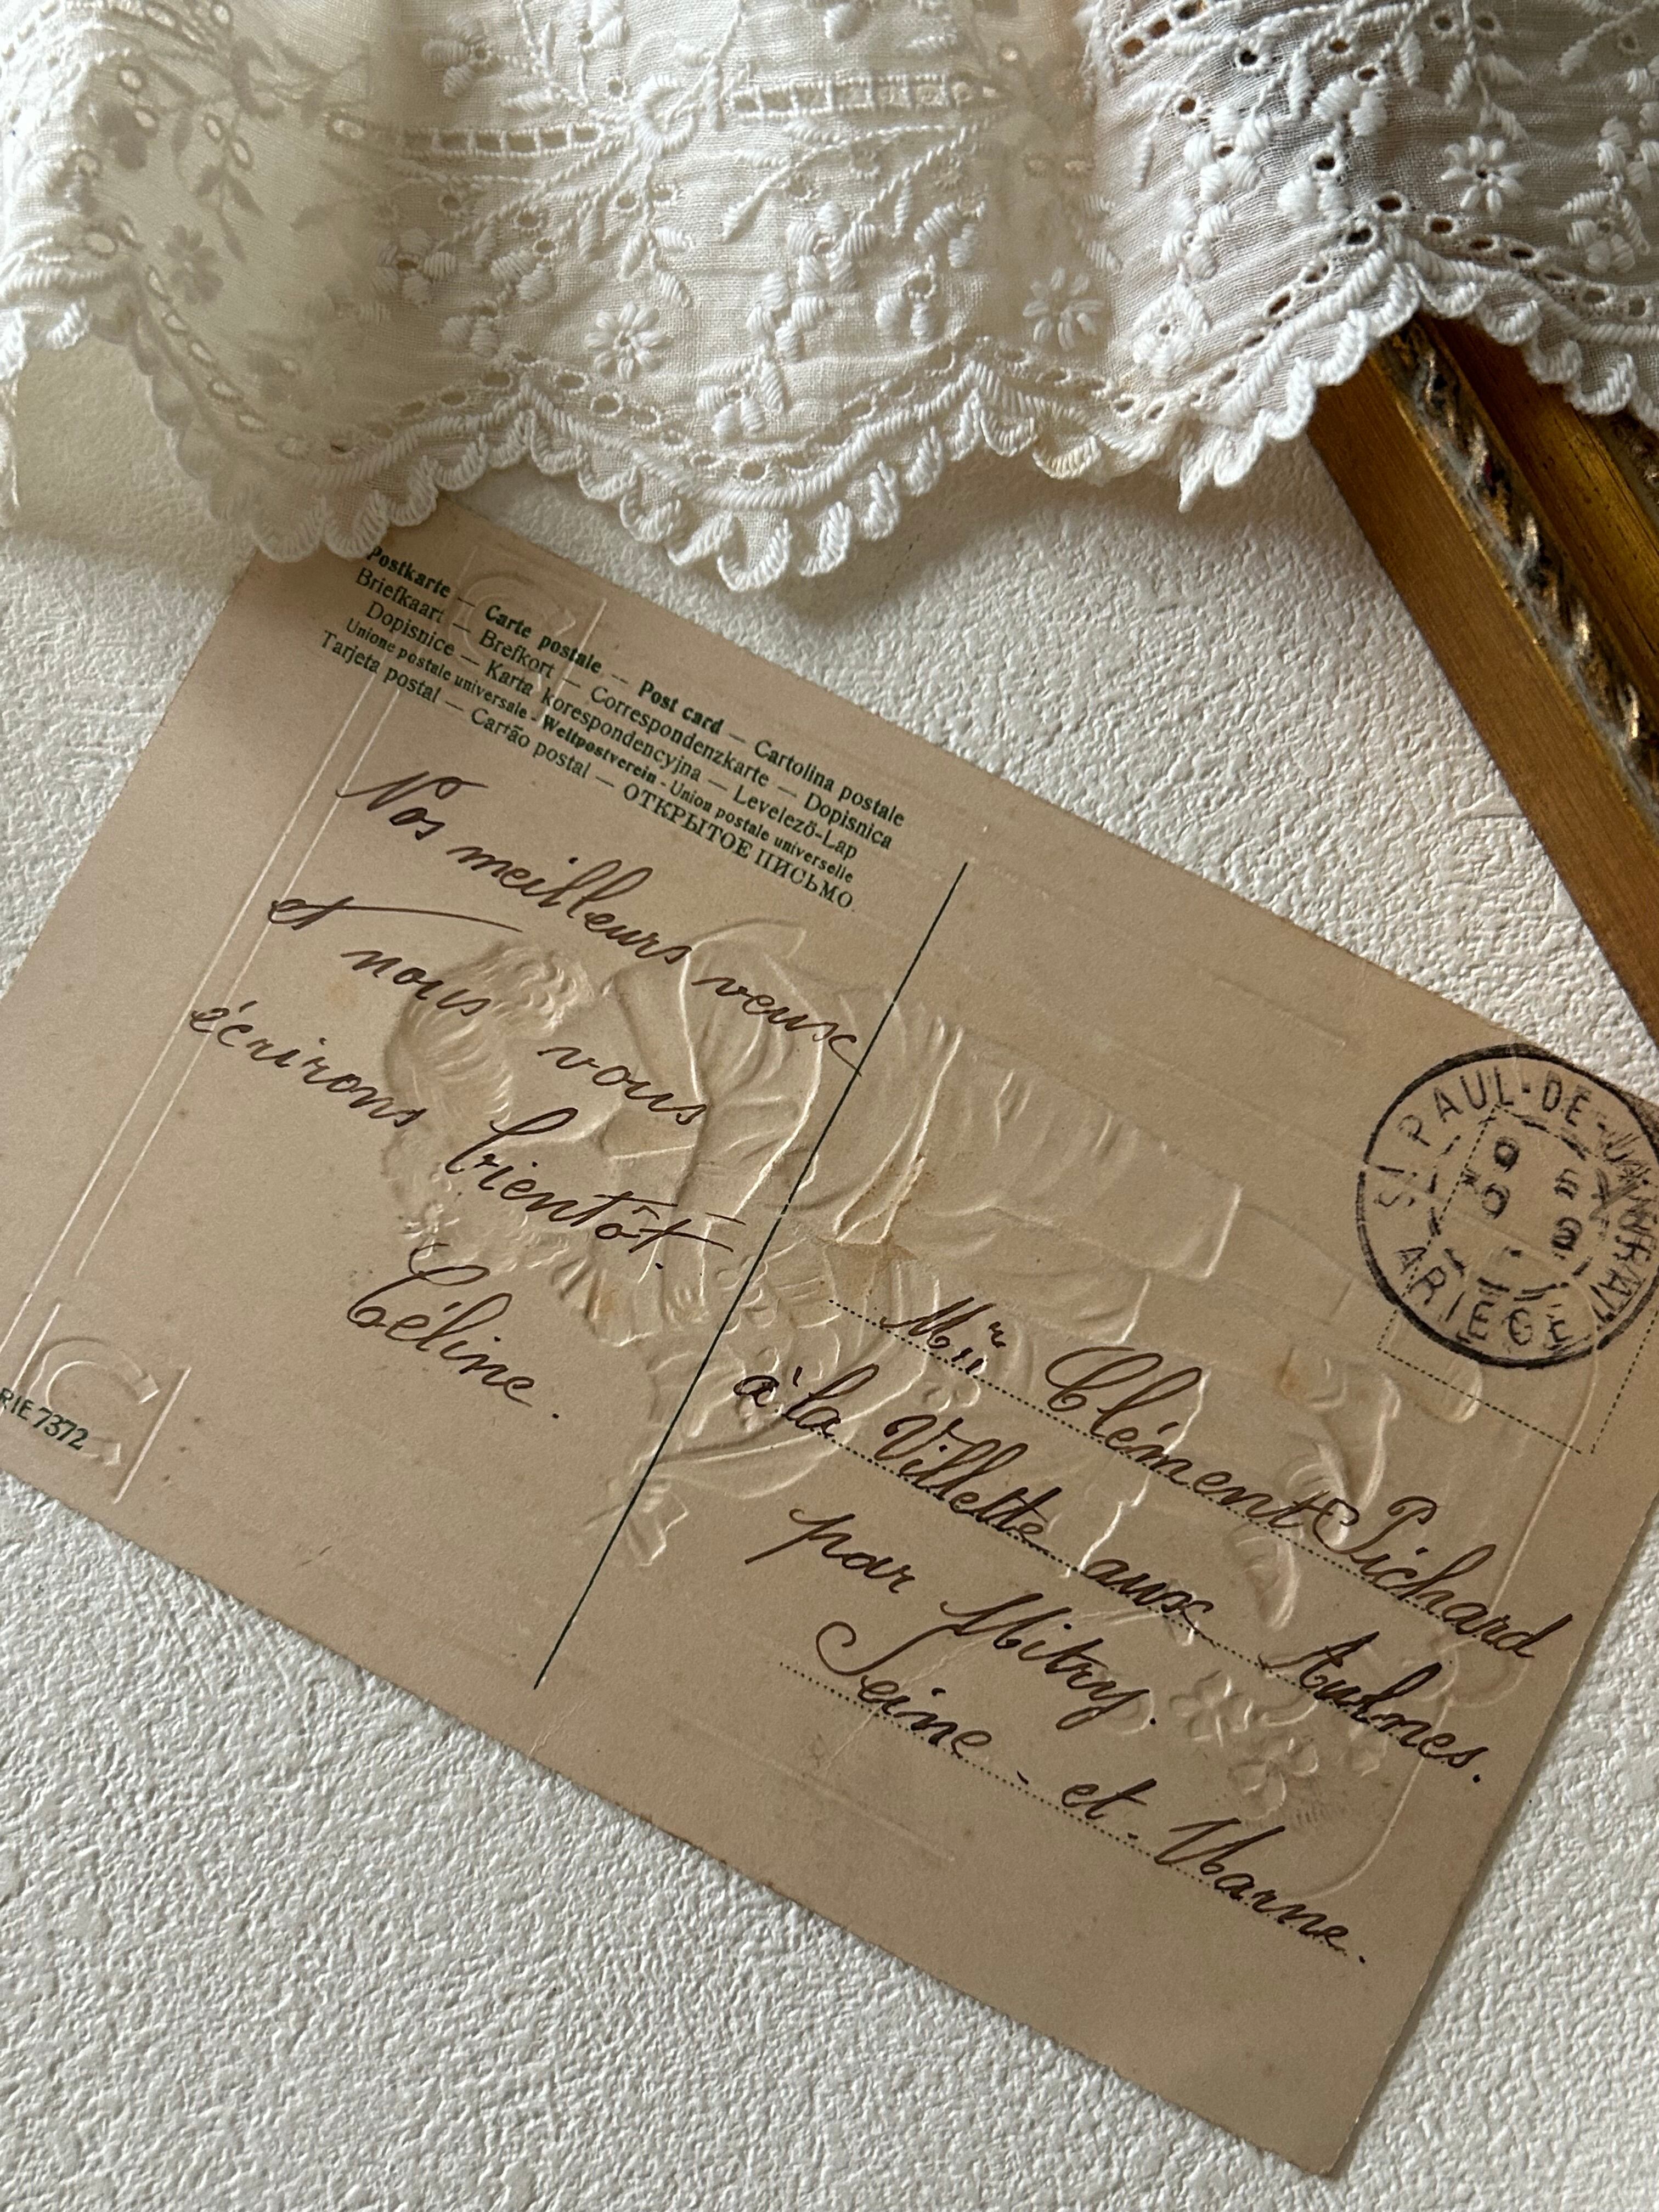 Postkarte — Carte postale — Post card — Cartolina postale
Briefkaart — Brefkort — Correspondenzkarte — Dopisnica
Dopisnice — Karta korespondencyjna — Levelező-Lap
Unione postale universale - Weltpostverein - Union postale universelle
Tarjeta postal — Cartão postal — ОТКРЫТОЕ ПИСЬМО
Nos meilleurs veux
et nous vous
écrirons bientôt.
Céline.
RIE 7372
ST PAUL-DE-JARRAT
ARIEGE
Mr Clément Pichard
à la Villette aux Aulnes.
par Mitry.
Seine-et-Marne.